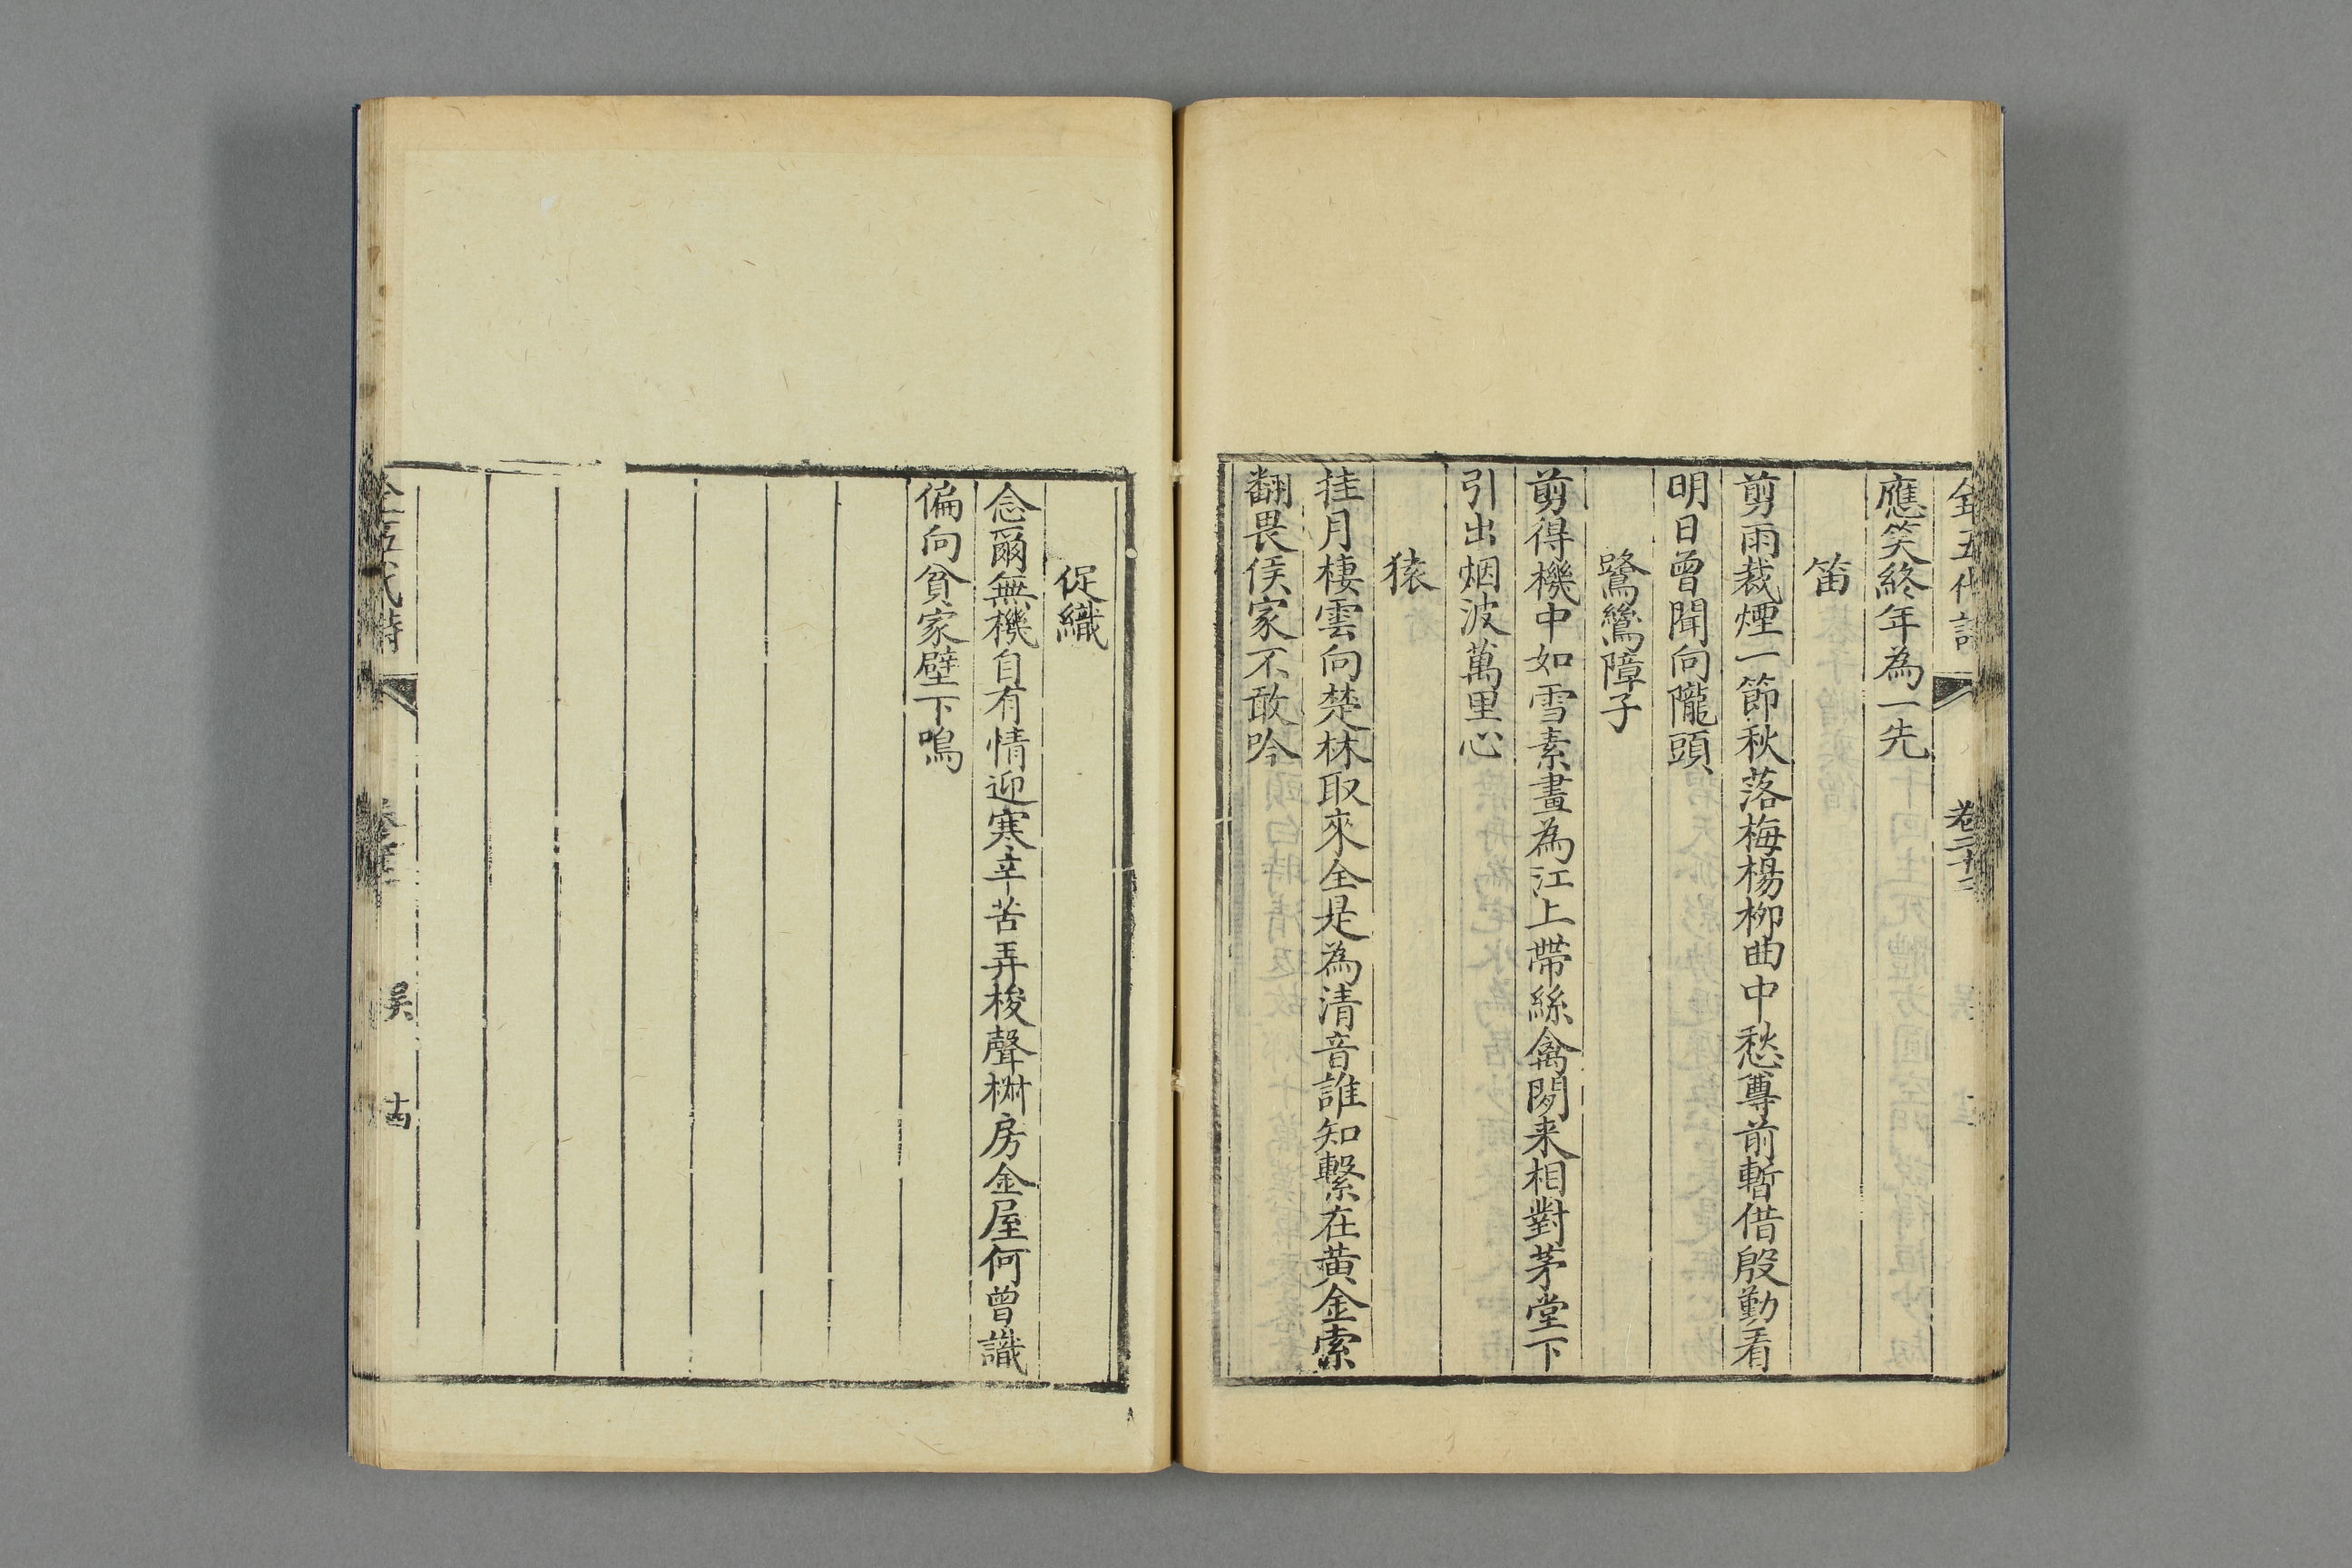 全五代詩
卷二十三
應笑終年為一先
笛
剪雨裁煙一節秋落梅楊柳曲中愁尊前暫借殷勤看
明日曾聞向隴頭
鷺鷥障子
剪得機中如雪素畫為江上帶絲禽閑来相對茅堂下
引出烟波萬里心
猿
挂月棲雲向楚林取來全是為清音誰知繫在黄金索
翻畏侯家不敢吟
促織
念爾無機自有情迎寒辛苦弄梭聲椒房金屋何曾識
偏向貧家壁下鳴
全五代詩
吴
十四